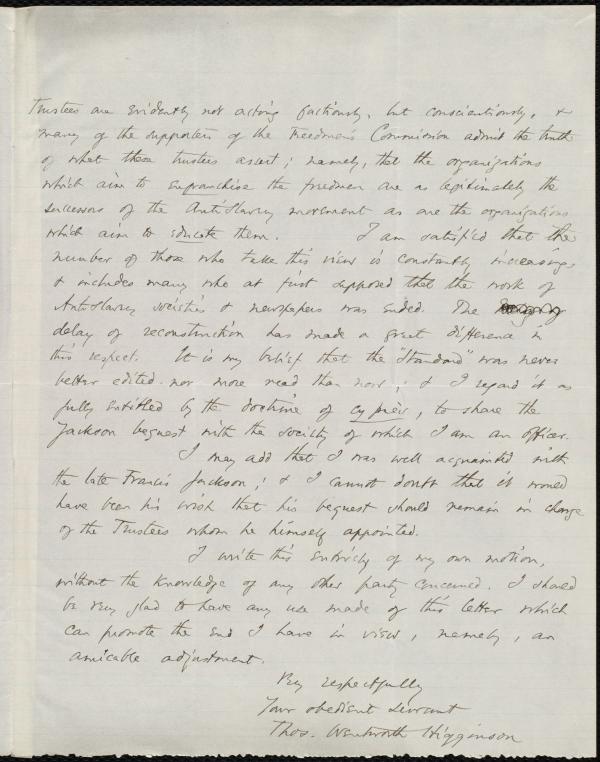 Trustees are evidently not acting factiously, but conscientiously, &
many of the supporters of the Freedmen's Commission admit the truth
of what these trustees assert; namely, that the organizations
which aim to enfranchise the freedmen are as legitimately the
successors of the AntiSlavery movement as are the organizations
which aim to educate them. I am satisfied that the
number of those who take this view is constantly increasing,
& includes many who at first supposed that the work of
AntiSlavery societies & newspapers was ended. The
delay of reconstruction has made a great difference in
this respect. It is my belief that the "Standard" was never
better edited nor more read than now; & I regard it as
fully entitled by the doctrine of cy près, to share the
Jackson bequest with the society of which I am an officer.
I may add that I was well acquainted with
the late Francis Jackson; & I cannot doubt that it would
have been his wish that his bequest should remain in charge
of the Trustees whom he himself appointed.
I write this entirely of my own motion,
without the knowledge of any other party concerned. I should
be very glad to have any use made of this letter which
can promote the end I have in view, namely, an
amicable adjustment.
Very respectfully
Your obedient servant
Thos. Wentworth Higginson